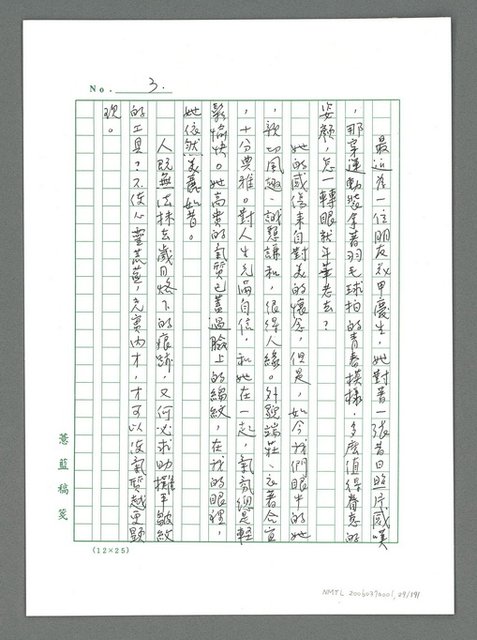 No. 3.
最近為一位朋友花甲慶生，她對著一張昔日照片感嘆
，那穿運動裝拿著羽毛球拍的青春模樣，多麼值得眷戀的
姿顏，怎一轉眼就年華老去？
她的感傷來自對美的懷念，但是，如今我們眼中的她
，親切風趣、誠懇謙和，很得人緣。外貌端莊、衣著合宜
，十分典雅。對人生充滿自信，和她在一起，氣氛總是輕
鬆愉快。她高貴的氣質已蓋過臉上的縐紋，在我的眼裡，
她依然美麗如昔。
人既無法抹去歲月烙下的痕跡，又何必求助攤平皺紋
的工具？不使心靈荒蕪，充實內才，才可以使氣質越更顯
現。
薏藍稿箋
(12×25)
NMTL 20060370001, 29/191